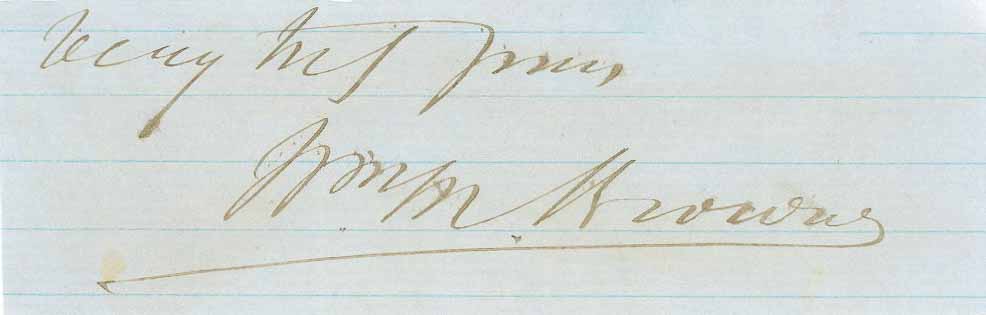 Very Yours
Wm M. Browne